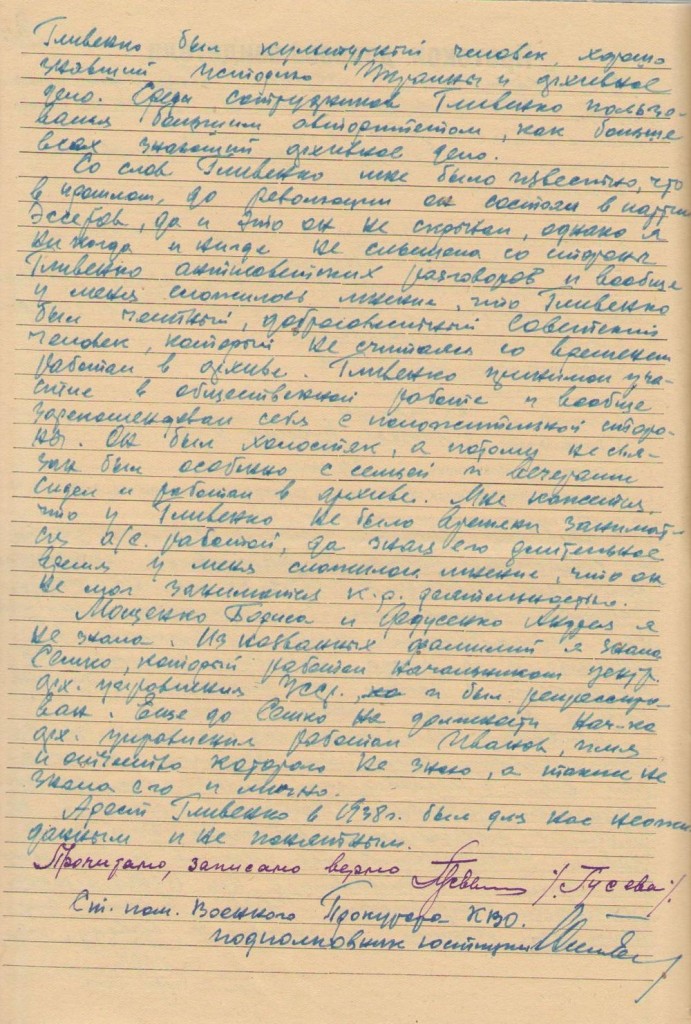 Гливенко был культурный человек, хорошо
знавший историю Украины и архивное
дело. Среди сотрудников Гливенко пользо-
вался большим авторитетом, как больше
всех знающий архивное дело.
Со слов Гливенко мне было известно, что
в прошлом, до революции он состоял в партии
Эссеров, да и это он не скрывал, однако я
никогда и нигде не слышала со стороны
Гливенко антисоветских разговоров и вообще
у меня сложилось мнение, что Гливенко
был честный, добросовестный советский
человек, который не считаясь со временем
работал в архиве. Гливенко принимал уча-
стие в общественной работе и вообще
зарекомендовал себя с положительной сторо-
ны. Он был холостяк, а потому не свя-
зан был особенно с семьей и вечерами
сидел и работал в архиве. Мне кажется,
что у Гливенко не было времени занимать-
ся а/с. работой, да зная его длительное
время у меня сложилось мнение, что он
не мог заниматься к.р. деятельностью.
Мощенко Бориса и Андрея я
не знала. Из названных фамилий я знала
Семко, который работал начальником центр.
арх. управления УССР, и был репрессиро-
ван. Еще до Семко на должности нач-ка
арх. управления работал Иванов, имя
и отчество которого не знаю, а также не
знала его и лично.
Арест Гливенко в 1938 г. был для нас неожи
данным и не понятным.
Прочитано, записано верно /Гусева/.
Ст. пом. Военного Прокурора КВО.
подполковник юстиции